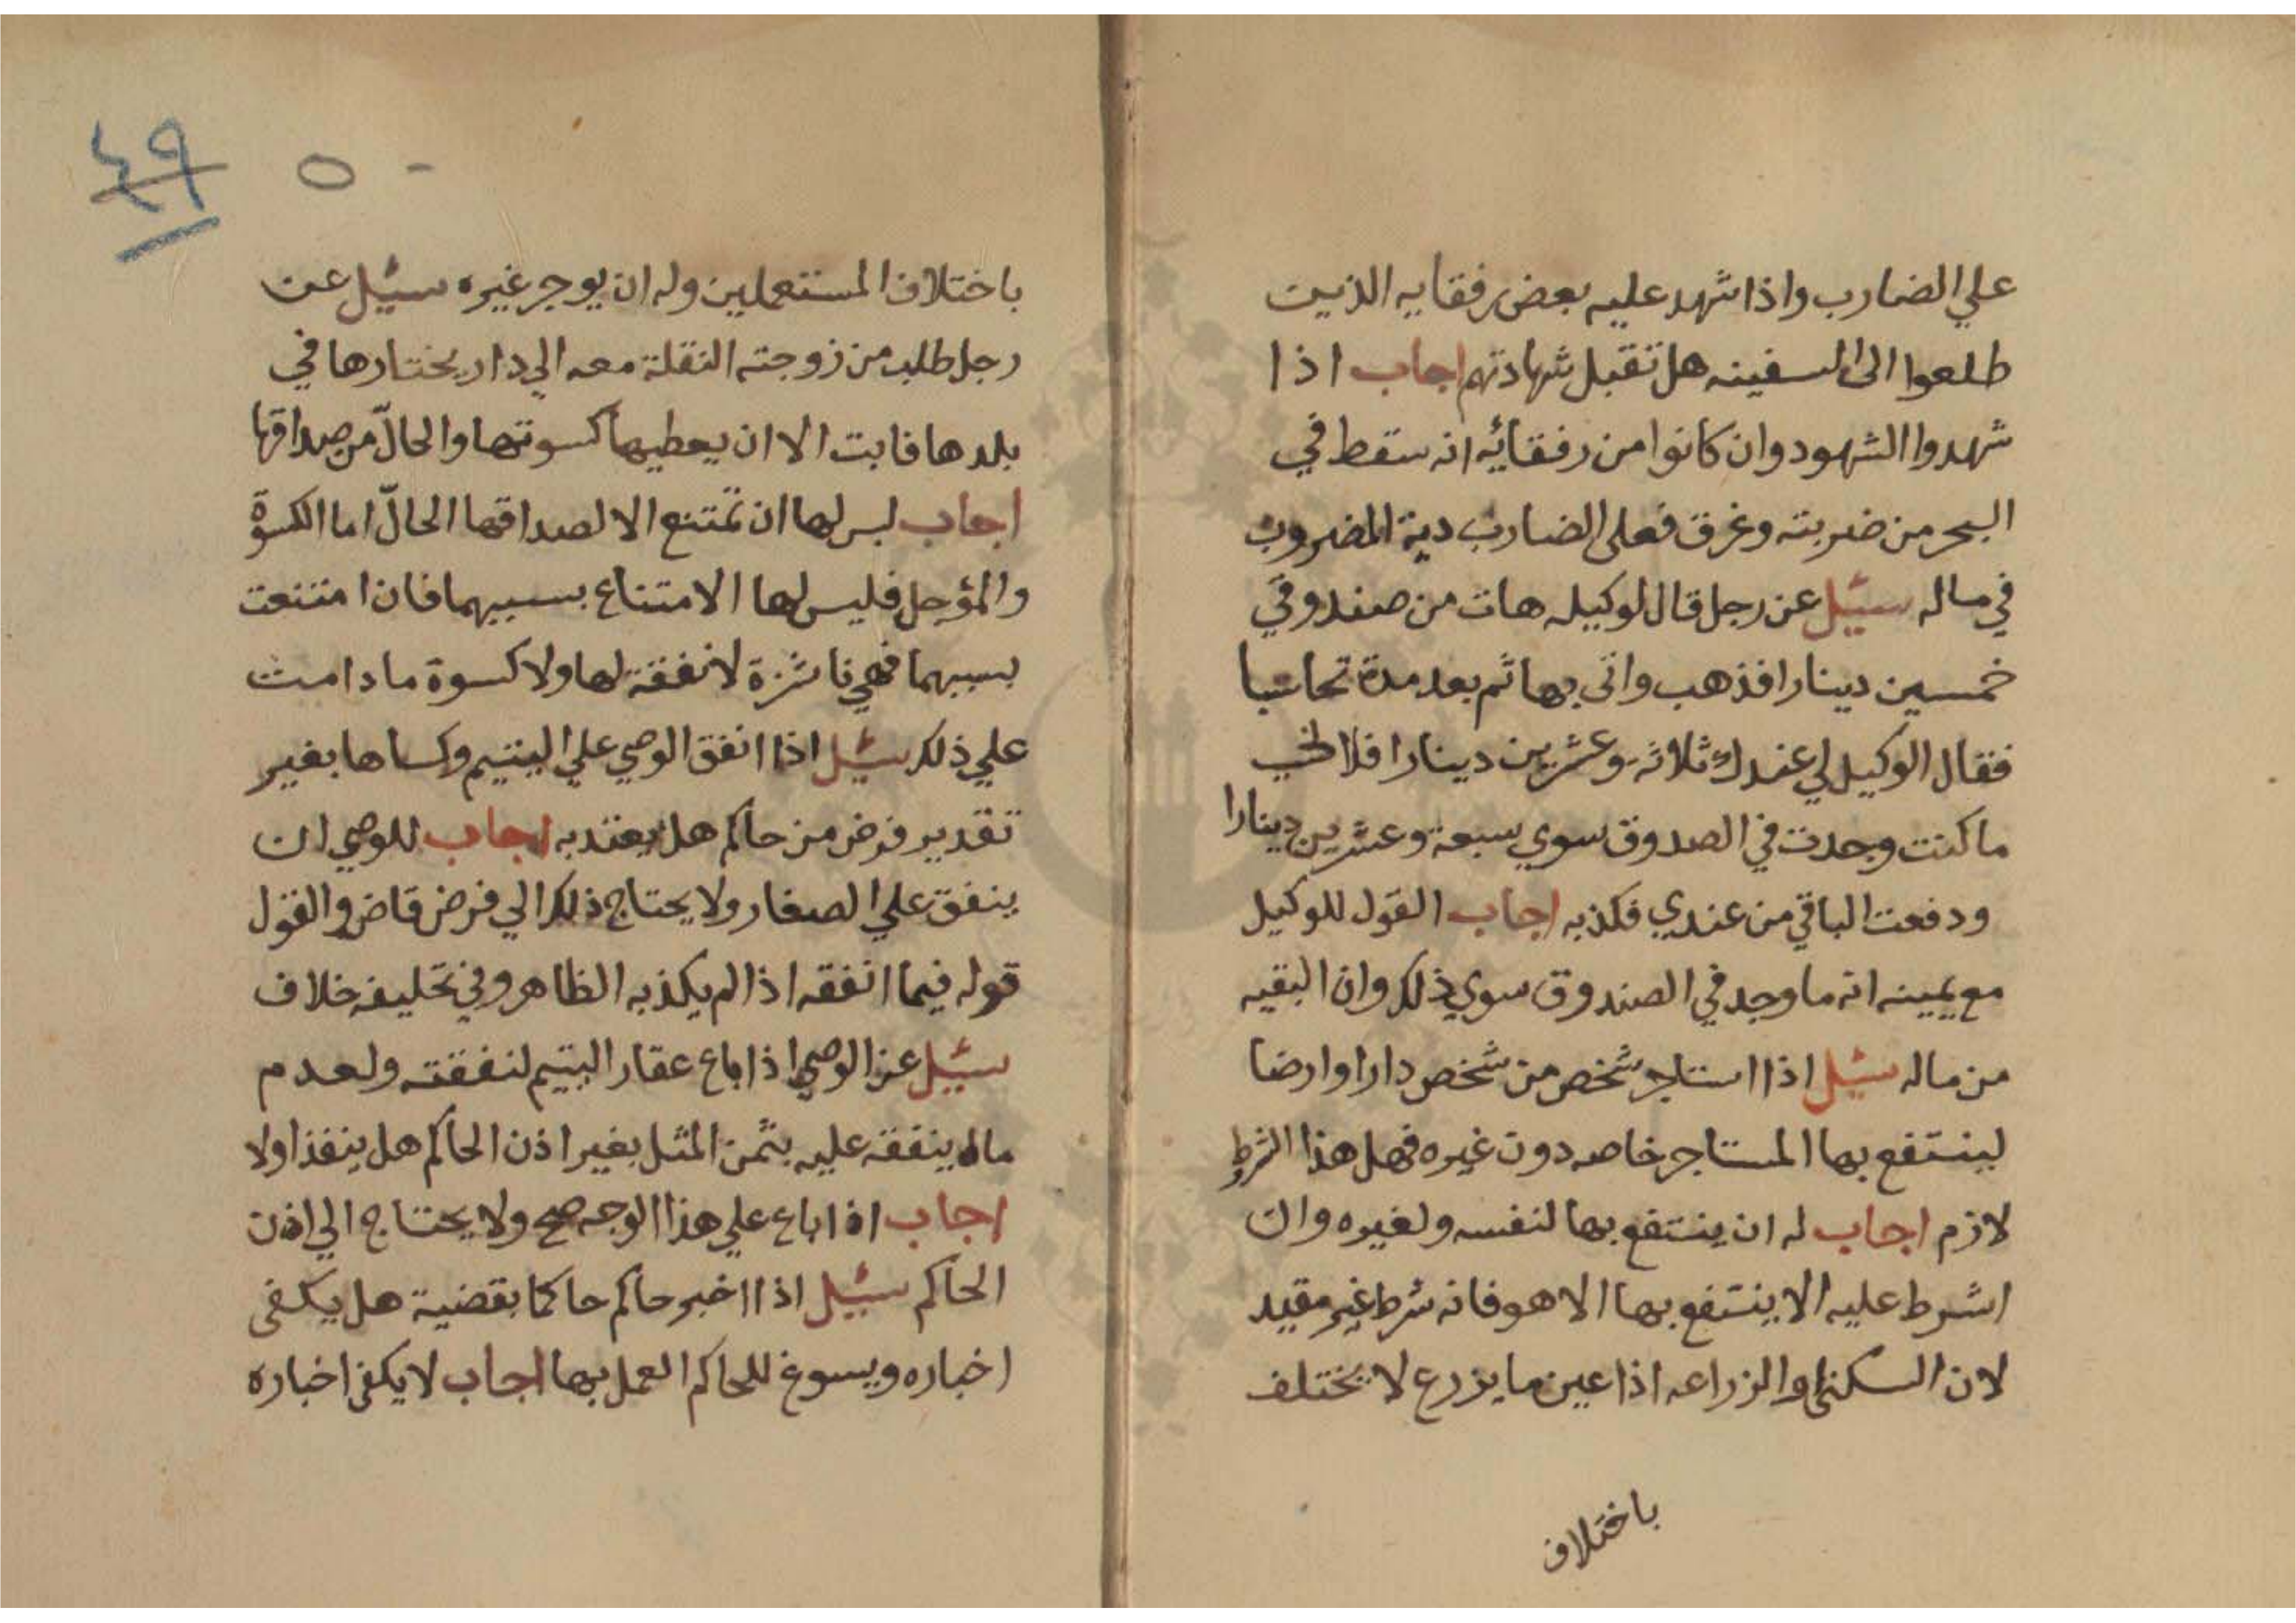 علي الضارب واذا شهد عليه بعض رفقايه الذين
طلعوا الى السفينه هل تقبل شهادتهم اجاب اذا
شهدوا الشهود وان كانوا من رفقائه انه سقط في
البحر من ضربته وغرق فعلى الضارب دية المضروب
في ماله سئيل عن رجل قال لوكيله هات من صندوقي
خمسين دينارا فذهب واتى بها ثم بعد مدة تحاسبا
فقال الوكيل لي عندك ثلاثة وعشرين دينارا فلا
ما كنت وجدت في الصدوق سوي سبعة وعشرين دينارا
ودفعت الباقي من عندي فكذبه اجاب القول للوكيل
مع يمينه انه ما وجد في الصندوق سوي ذلك وان البقيه
من ماله سئيل اذا استاجر شخص من شخص دارا وارضا
لينتفع بها المستاجر خاصه دون غيره فهل هذا الشرط
لازم اجاب له ان ينتفع بها لنفسه ولغيره وان
اشرط عليه الا ينتفع بها الا هو فانه شرط غير مقيد
لان السكنى والزراعه اذا عين ما يزرع لا يختلف
باختلاف
٤٩ ٥٠
باختلاف المستعملين وله ان يوجر غيره سئيل عن
رجل طلب من زوجته النقلة معه الي دار يختارها في
بلدها فابت الا ان يعطيها كسوتها والحالّ من صداقها
اجاب ليس لها ان تمتنع الا لصداقها الحالّ اما الكسوة
والمؤجل فليس لها الامتناع بسببهما فان امتنعت
بسببهما فهي ناشزة لا نفقة لها ولا كسوة ما دامت
علي ذلك سئيل اذا انفق الوصي علي اليتيم وكساها بغير
تقدير فرض من حاكم هل يعتد به اجاب للوصي ان
ينفق علي الصغار ولا يحتاج ذلك الي فرض قاض والقول
قوله فيما انفقه اذا لم يكذبه الظاهر وفي تحليفه خلاف
سئيل عن الوصي اذا باع عقار اليتيم لنفقته ولعدم
ماله ينفقه عليه بثمن المثل بغير اذن الحاكم هل ينفذ اولا
اجاب اذا باع علي هذا الوجه صح ولا يحتاج الي اذن
الحاكم سئيل اذا اخبر حاكم حاكما بقضية هل يكفى
اخباره ويسوغ للحاكم العمل بها اجاب لا يكفى اخباره